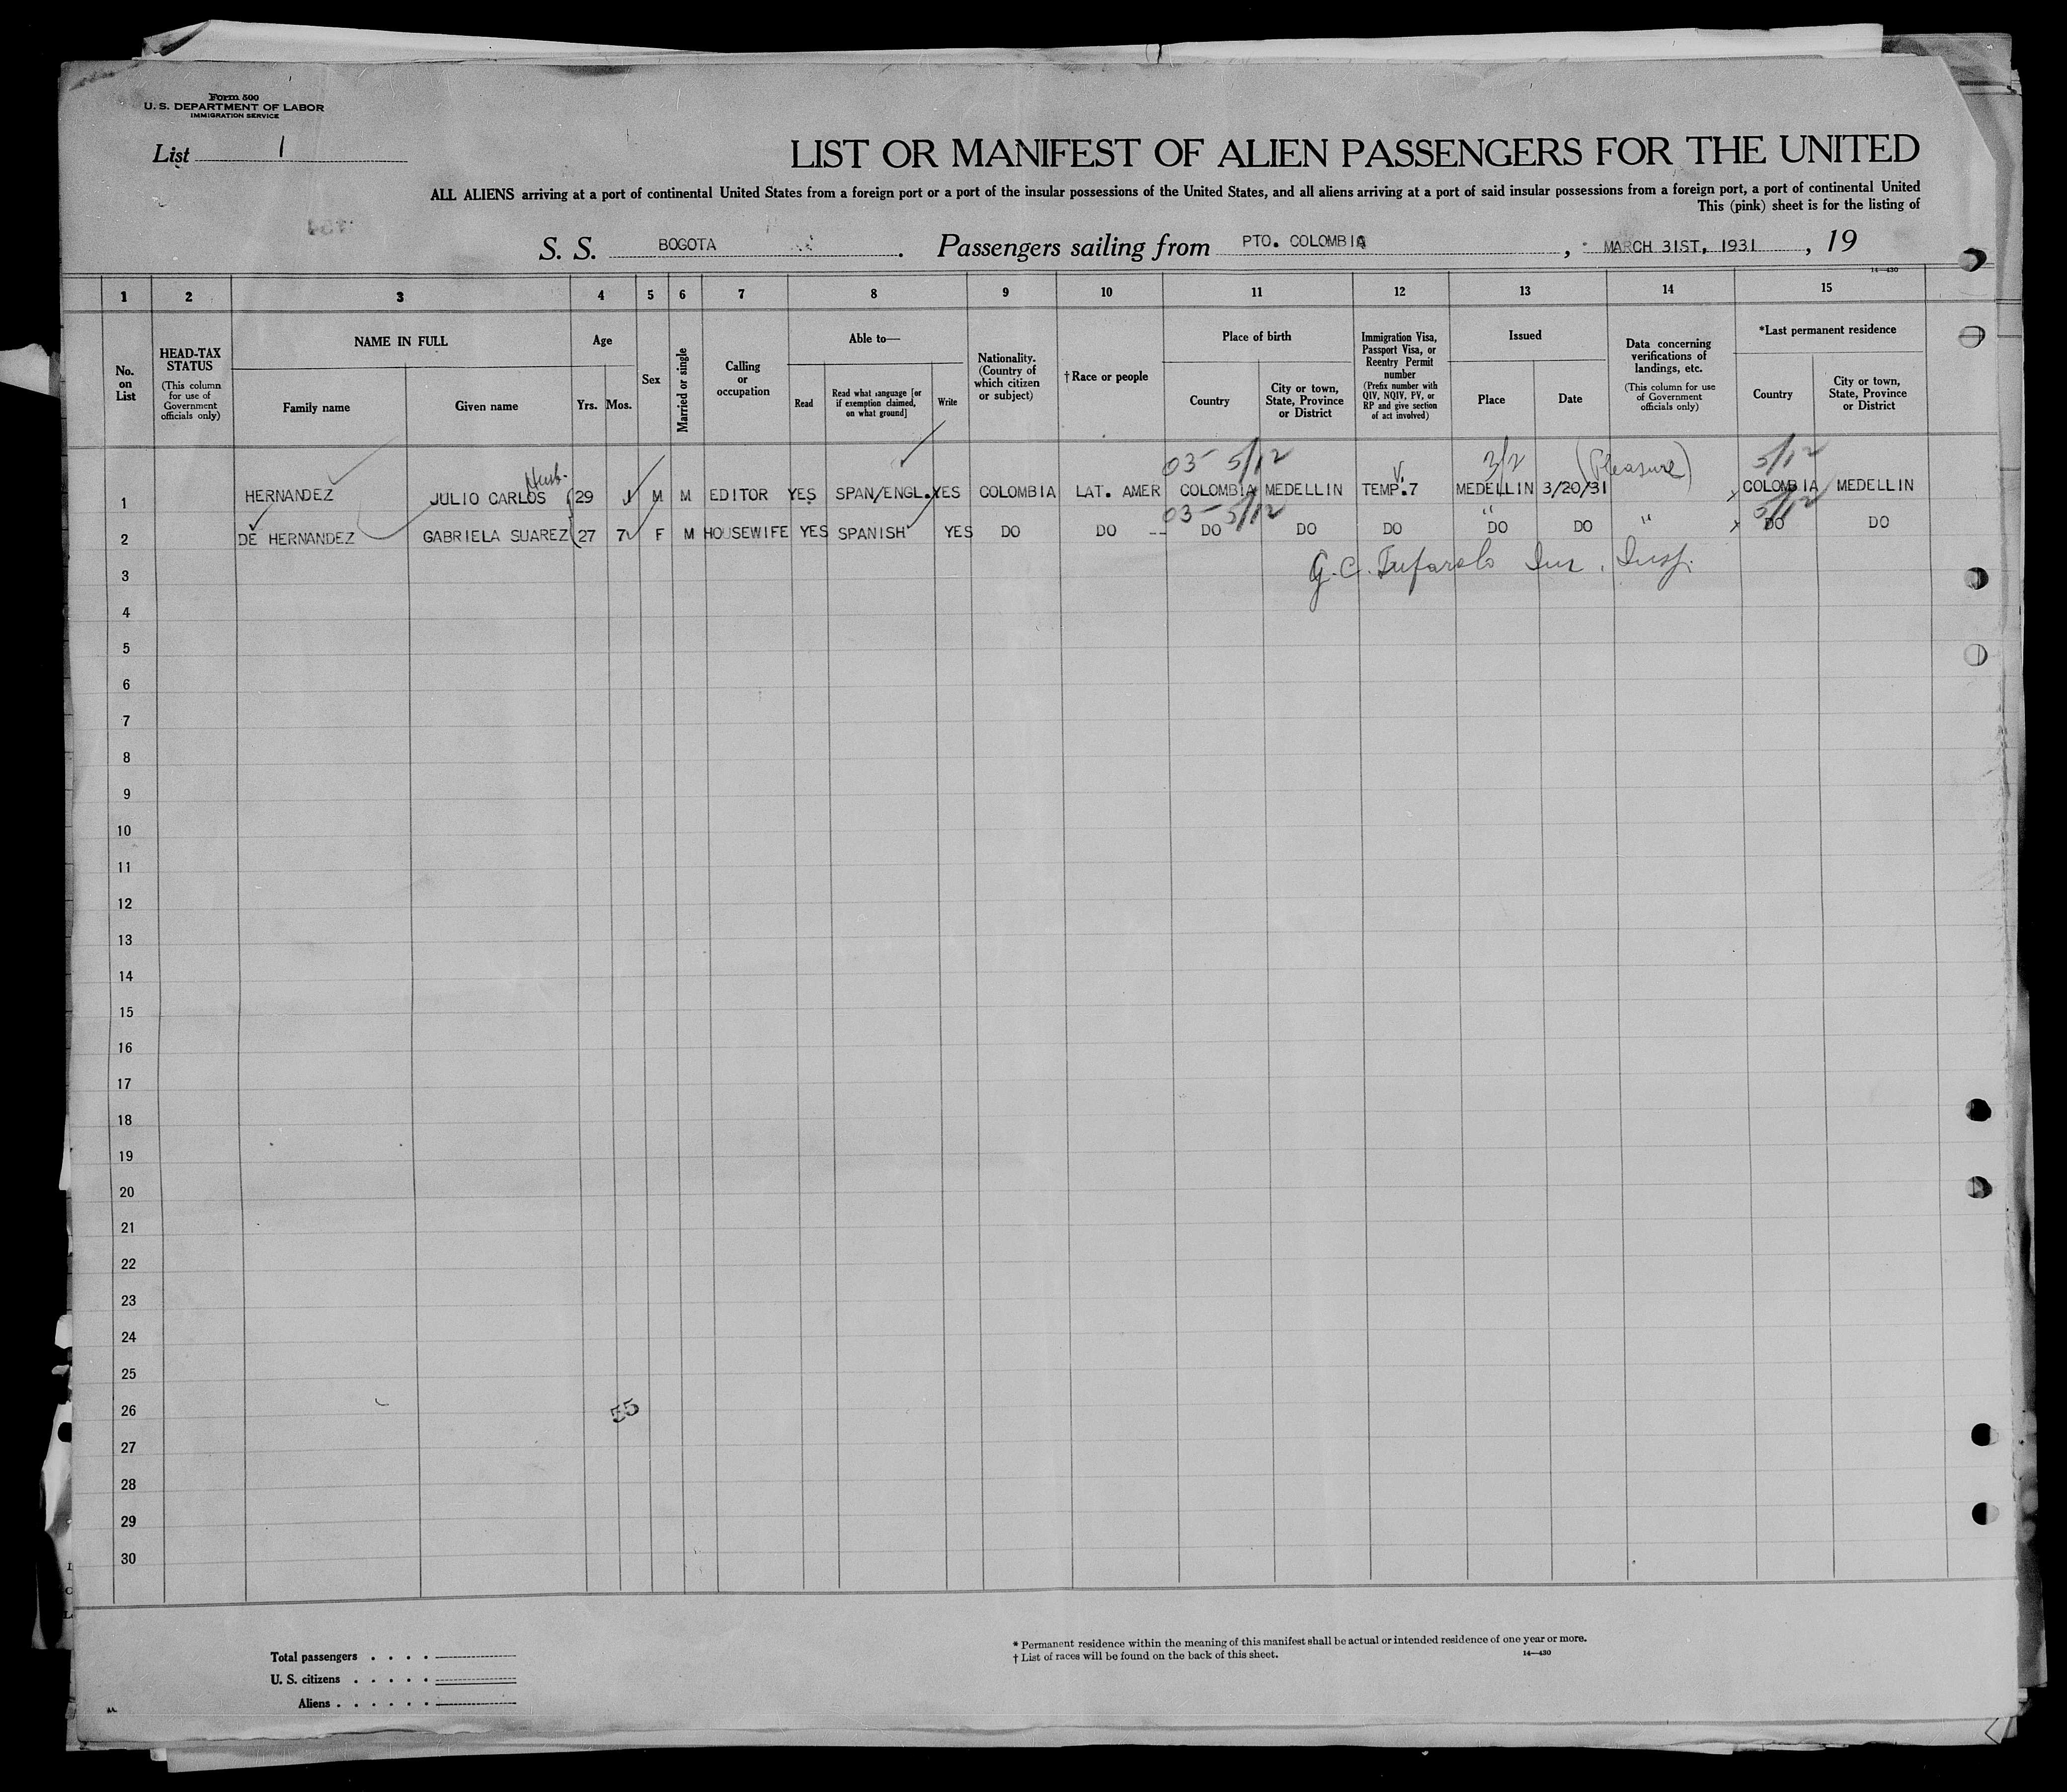 Form 500
U. S. DEPARTMENT OF LABOR
IMMIGRATION SERVICE
List 1
LIST OR MANIFEST OF ALIEN PASSENGERS FOR THE UNITED
ALL ALIENS arriving at a port of continental United States from a foreign port or a port of the insular possessions of the United States, and all aliens arriving at a port of said insular possessions from a foreign port, a port of continental United
This (pink) sheet is for the listing of
S. S. BOGOTA . Passengers sailing from PTO. COLOMBIA , MARCH 31ST, 1931 , 19
14—430
1 2 3 4 5 6 7 8 9 10 11 12 13 14 15
No. on List
HEAD-TAX STATUS (This column for use of Government officials only)
NAME IN FULL
Family name
Given name
Age
Yrs. Mos.
Sex
Married or single
Calling or occupation
Able to—
Read
Read what language [or if exemption claimed, on what ground]
Write
Nationality. (Country of which citizen or subject)
†Race or people
Place of birth
Country
City or town, State, Province or District
Immigration Visa, Passport Visa, or Reentry Permit number (Prefix number with QIV, NQIV, PV, or RP and give section of act involved)
Issued
Place
Date
Data concerning verifications of landings, etc. (This column for use of Government officials only)
*Last permanent residence
Country
City or town, State, Province or District
03- 5/12 V. 3/2 (Pleasure) 5/12
Husb.
1 HERNANDEZ JULIO CARLOS 29 M M EDITOR YES SPAN/ENGL. YES COLOMBIA LAT. AMER COLOMBIA MEDELLIN TEMP.7 MEDELLIN 3/20/31 x COLOMBIA MEDELLIN
03- 5/12 " " 5/12
2 DE HERNANDEZ GABRIELA SUAREZ 27 7 F M HOUSEWIFE YES SPANISH YES DO DO -- DO DO DO DO DO x DO DO
G. C. Imm. Insp.
3
4
5
6
7
8
9
10
11
12
13
14
15
16
17
18
19
20
21
22
23
24
25
26 55
27
28
29
30
Total passengers . . . .
U. S. citizens . . . . .
Aliens . . . . . .
* Permanent residence within the meaning of this manifest shall be actual or intended residence of one year or more.
† List of races will be found on the back of this sheet.
14—430